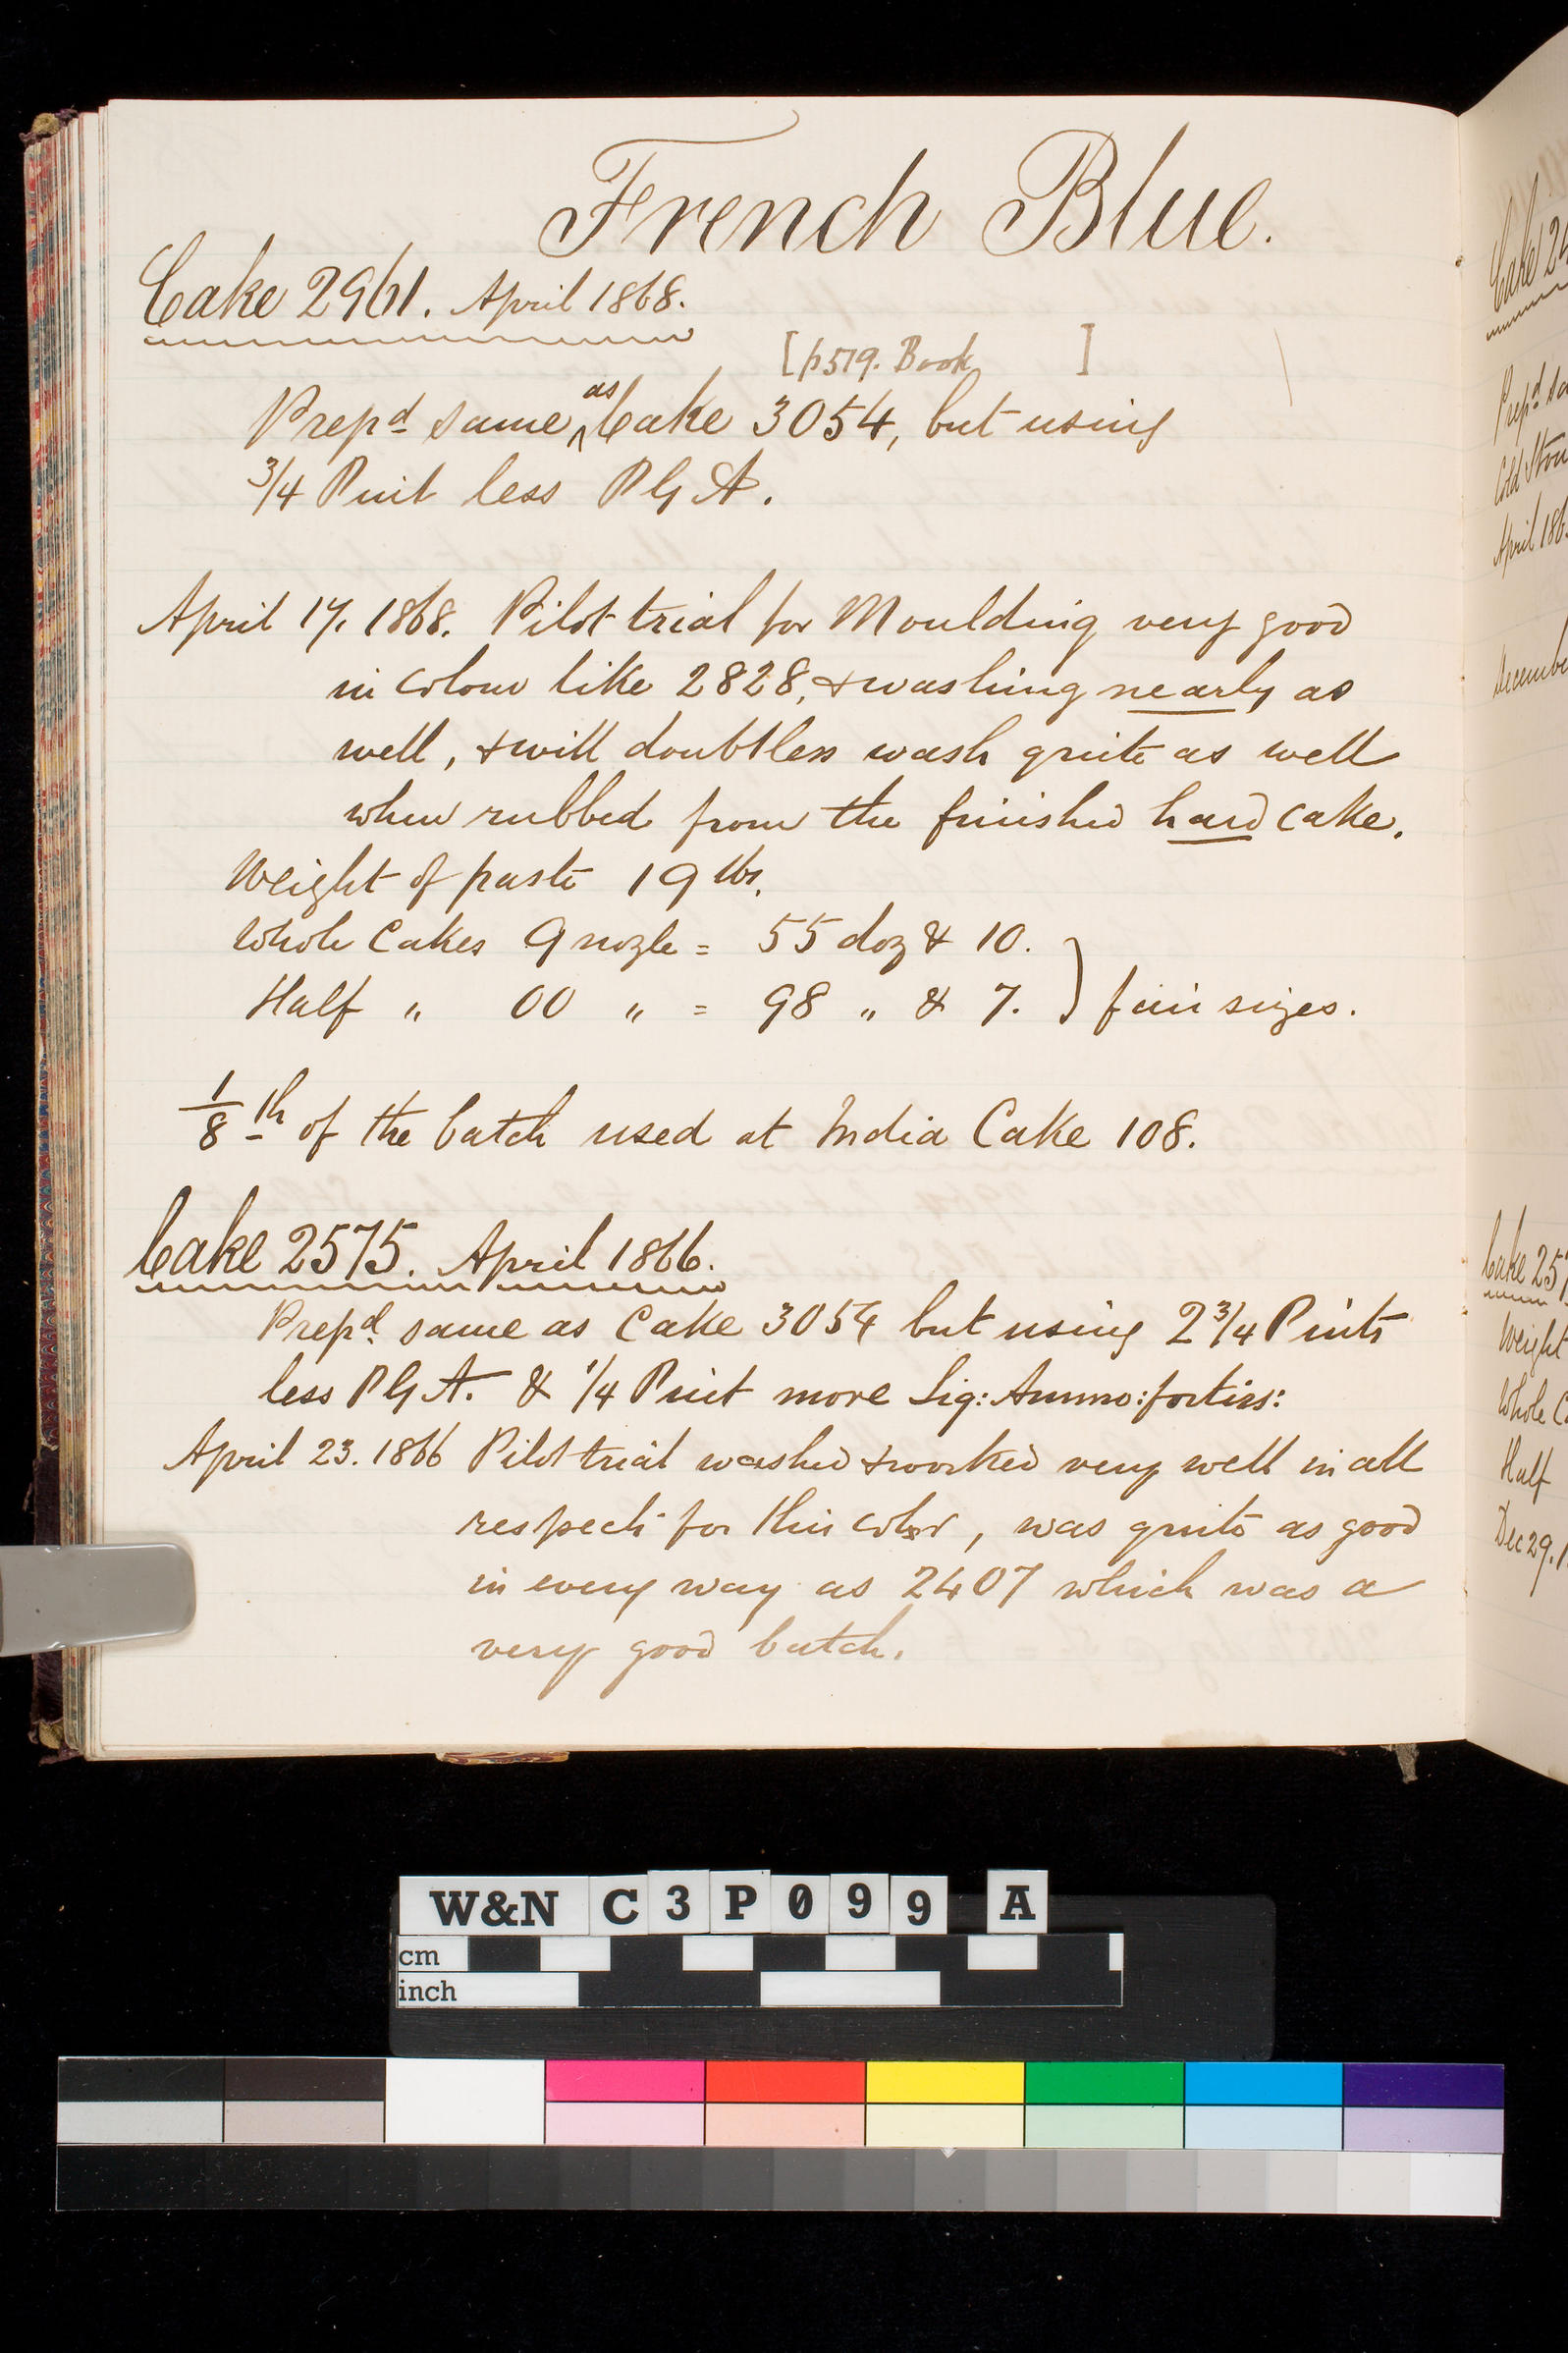 French Blue.
Cake 2961. April 1868.
[p519. Book ]
Prepd same as Cake 3054, but using
3/4 Pint less P G A.
April 17. 1868. Pilot trial for Moulding very good
in colour like 2828, & washing nearly as
well, & will doubtless wash quite as well
when rubbed from the finished hard cake.
Weight of paste 19 lbs.
Whole Cakes 9 nozle = 55 doz & 10.
Half " 00 " = 98 " & 7. } fair sizes.
1/8th of the batch used at India Cake 108.
Cake 2575. April 1866.
Prepd. same as Cake 3054 but using 2 3/4 Pints
less P G A. & 1/4 Pint more Liq: Ammo: fortiss:
April 23. 1866 Pilot trial washed & worked very well in all
respects for this color, was quite as good
in every way as 2407 which was a
very good batch.
Cake 24
Prepd sa
Cold Ston
April 186
Decembe
Cake 257
Weight
Whole C
Half
Dec 29. 1
W&N C3P099 A
cm
inch